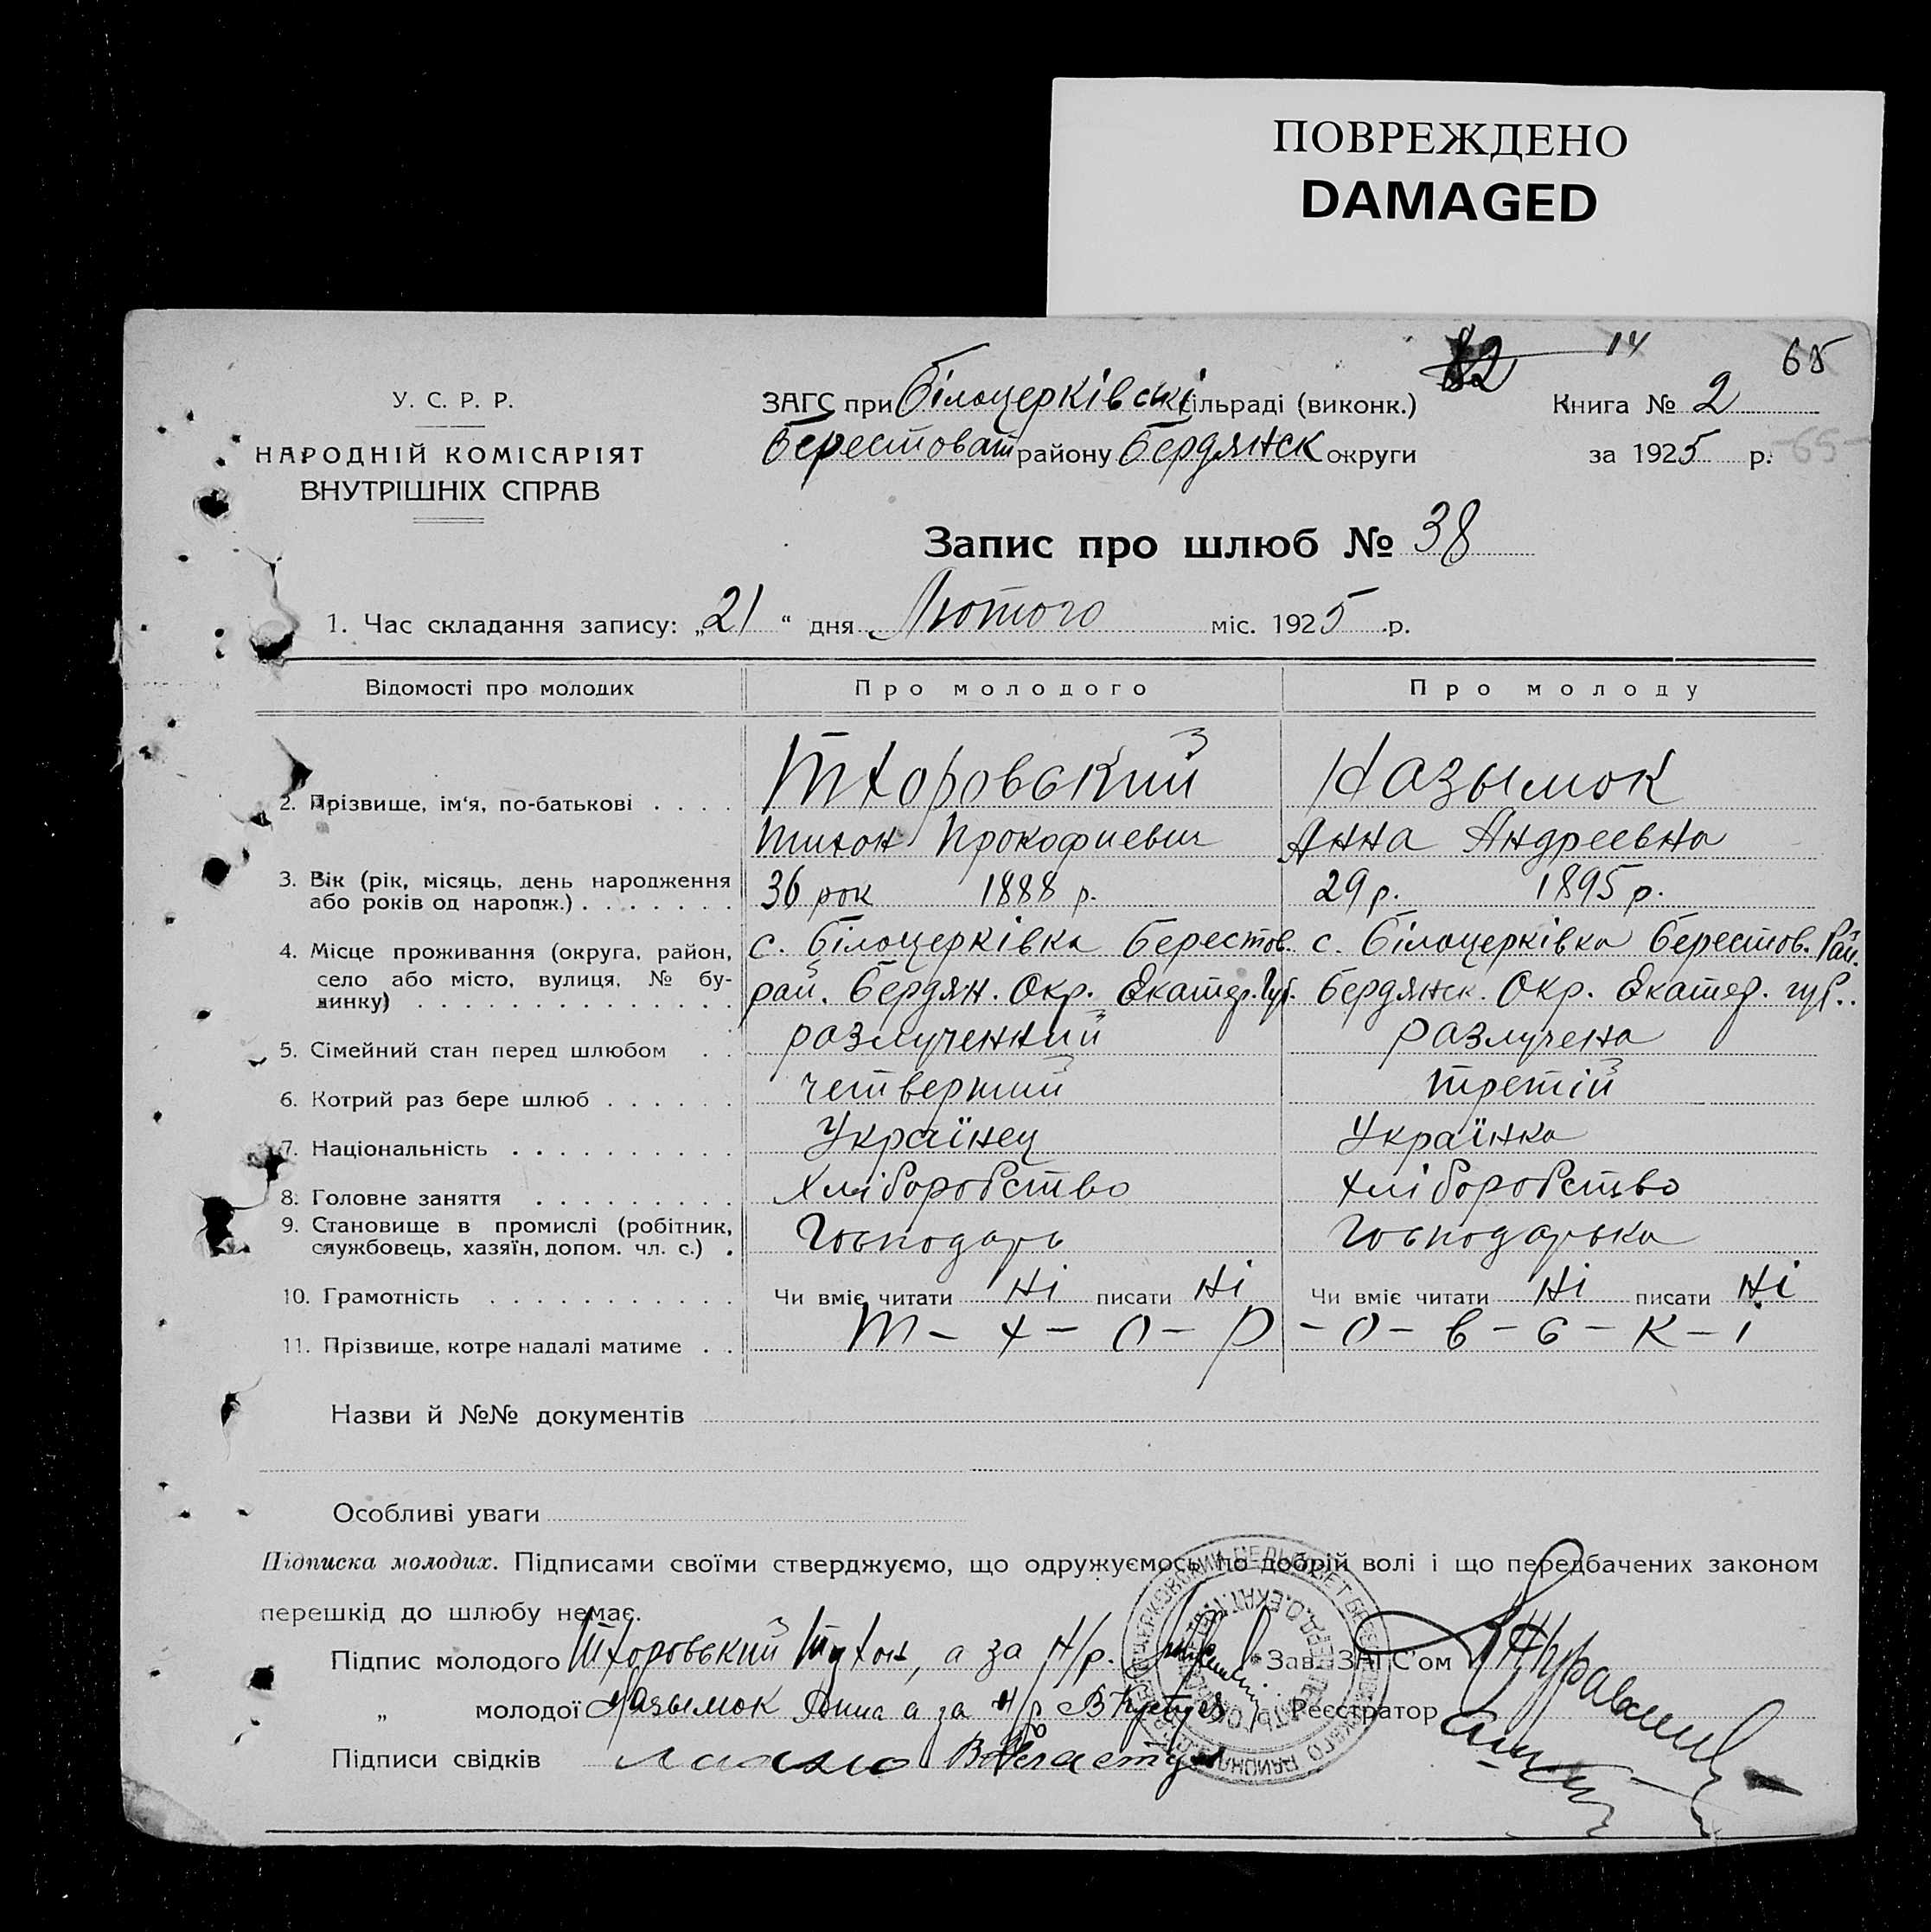 ПОВРЕЖДЕНО
DAMAGED
82 14 65
У. С. Р. Р.
НАРОДНІЙ КОМІСАРІЯТ
ВНУТРІШНІХ СПРАВ
ЗАГС при Білоцерківські сільраді (виконк.)
Берестоват району Бердянск округи
Книга № 2
за 1925 р. -65-
Запис про шлюб № 38
1. Час складання запису: „21“ дня Лютого міс. 1925 р.
Відомості про молодих Про молодого Про молоду
2. Прізвище, ім'я, по-батькові . . . . Тхоровський Казымок
Тихон Прокофиевич Анна Андреевна
3. Вік (рік, місяць, день народження або років од народж.) . . . . . . . 36 рок 1888 р. 29 р. 1895 р.
4. Місце проживання (округа, район, село або місто, вулиця, № будинку) . . . . . . . . . . . . .
с. Білоцерківка Берестов. рай. Бердян. Окр. Екатер. Губ.
с. Білоцерківка Берестов. Рай. Бердянск. Окр. Екатер. губ..
5. Сімейний стан перед шлюбом . . разлученний разлучена
6. Котрий раз бере шлюб . . . . . . четвертий третій
7. Національність . . . . . . . . . . Українец Українка
8. Головне заняття . . . . . . . . . Хліборобство хліборобство
9. Становище в промислі (робітник, службовець, хазяїн, допом. чл. с.) . Господарь Господарька
10. Грамотність . . . . . . . . . . . Чи вміє читати Ні писати Ні Чи вміє читати Ні писати Ні
11. Прізвище, котре надалі матиме . . Т-х-о-р-о-в-с-к-і
Назви й №№ документів
Особливі уваги
Підписка молодих. Підписами своїми стверджуємо, що одружуємось по добрій волі і що передбачених законом
перешкід до шлюбу немає.
Підпис молодого Тхоровський Тихон, а за н/р. Зав. ЗАГС'ом Журавель
„ молодої Казымок Анна а за н/р Реєстратор
Підписи свідків